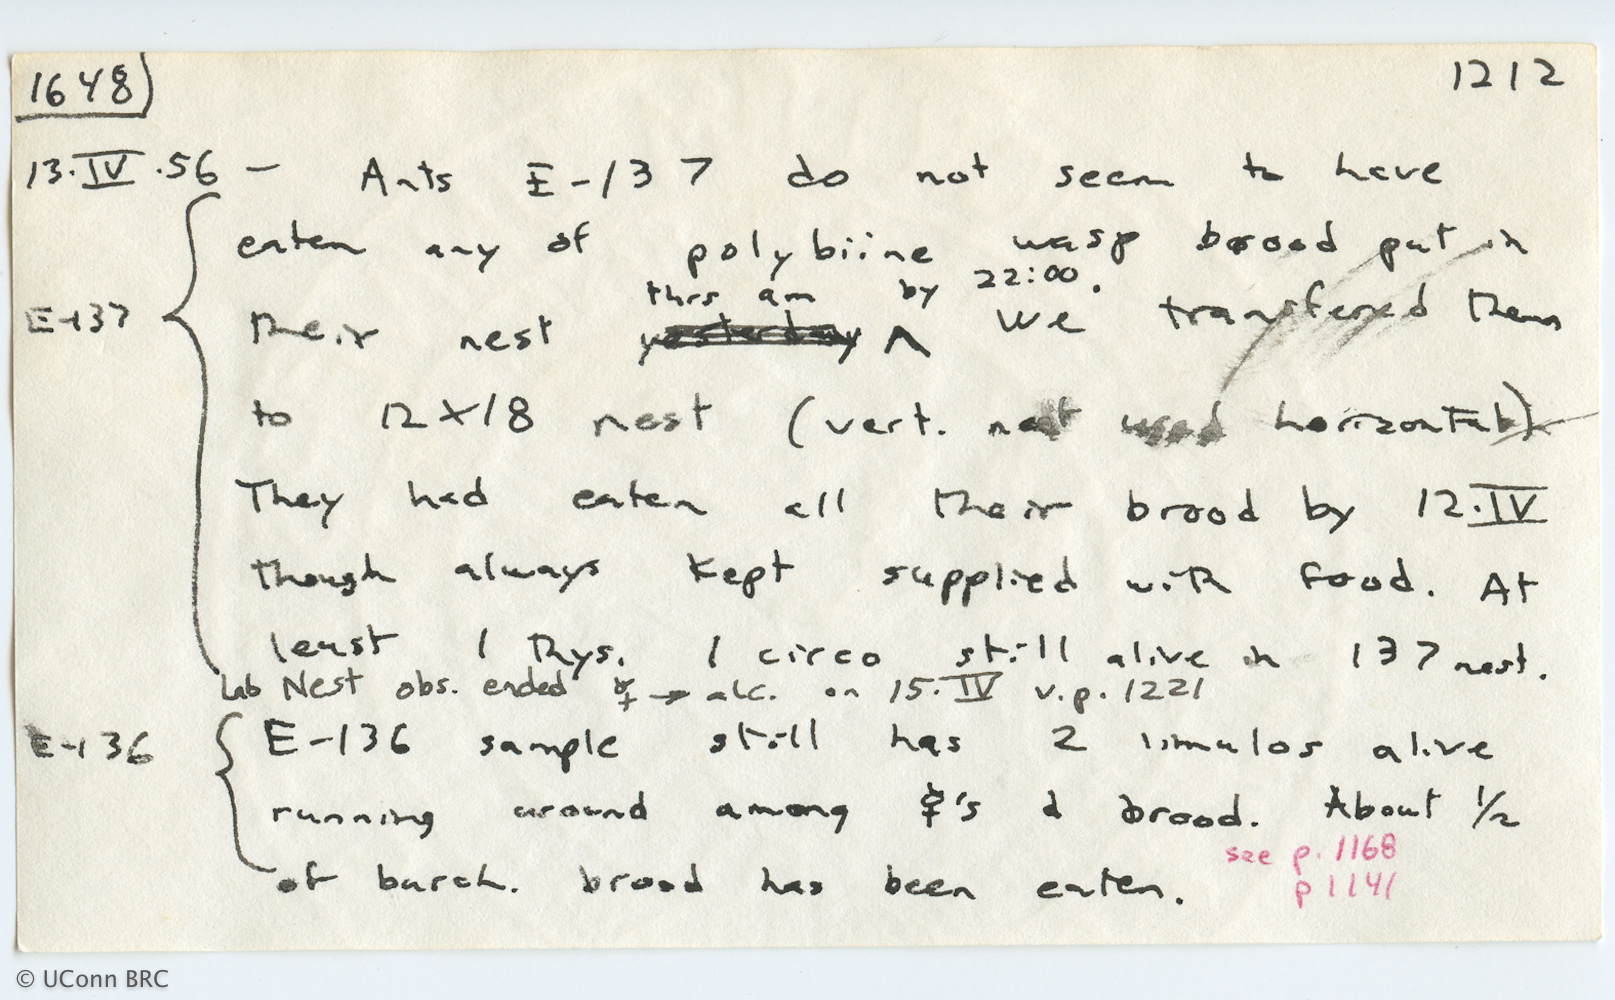 1648) 1212
13.IV.56 — Ants E-137 do not seem to have
eaten any of polybiine wasp brood put in
this am by 22:00.
E-137 their nest yesterday ^ We transferred them
to 12X18 nest (vert. nest used horizontal)
They had eaten all their brood by 12.IV
though always kept supplied with food. At
least 1 thys. 1 circo still alive in 137 nest.
Lab Nest obs. ended ☿ → alc. on 15.IV v.p. 1221
E-136 E-136 sample still has 2 limulos alive
running around among ☿'s & brood. About 1/2
of burch. brood has been eaten.
see p. 1168
p 1141
© UConn BRC